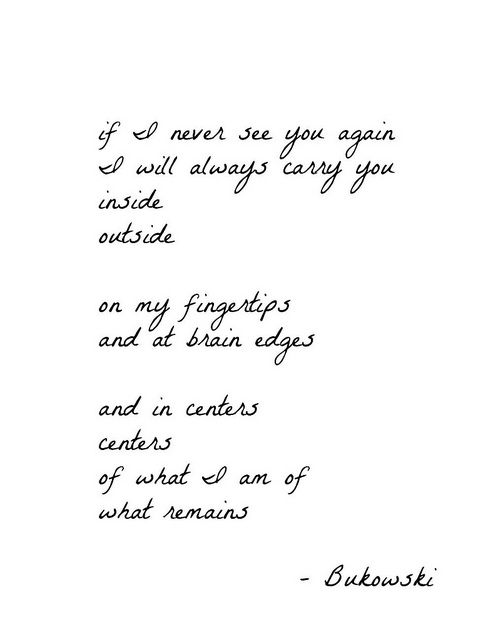 if I never see you again
I will always carry you
inside
outside
on my fingertips
and at brain edges
and in centers
centers
of what I am of
what remains
- Bukowski